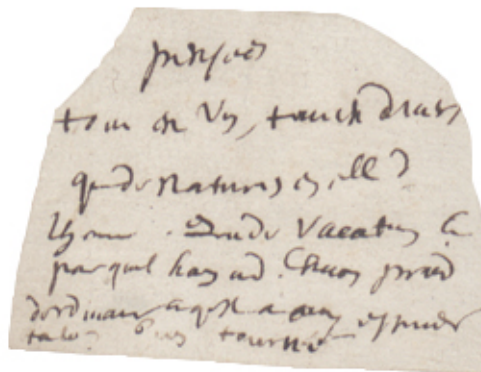 pensees
tout est Un, tout est diuers
que de natures en celle de
lhomme. Que de Vacations Et
par quel hazard. Chacun prend
dordinaire ce qu'il a ouy estimer
talon bien tourné